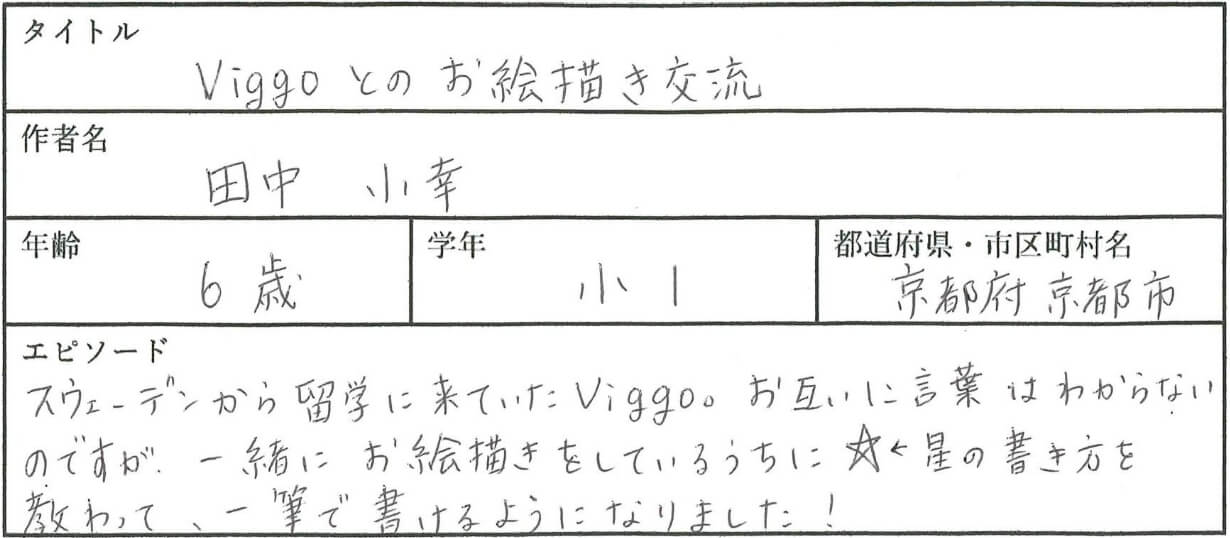 タイトル
Viggoとのお絵描き交流
作者名
田中 小幸
年齢
6歳
学年
小1
都道府県・市区町村名
京都府京都市
エピソード
スウェーデンから留学に来ていたViggo。お互いに言葉はわからない
のですが、一緒にお絵描きをしているうちに☆←星の書き方を
教わって、一筆で書けるようになりました!